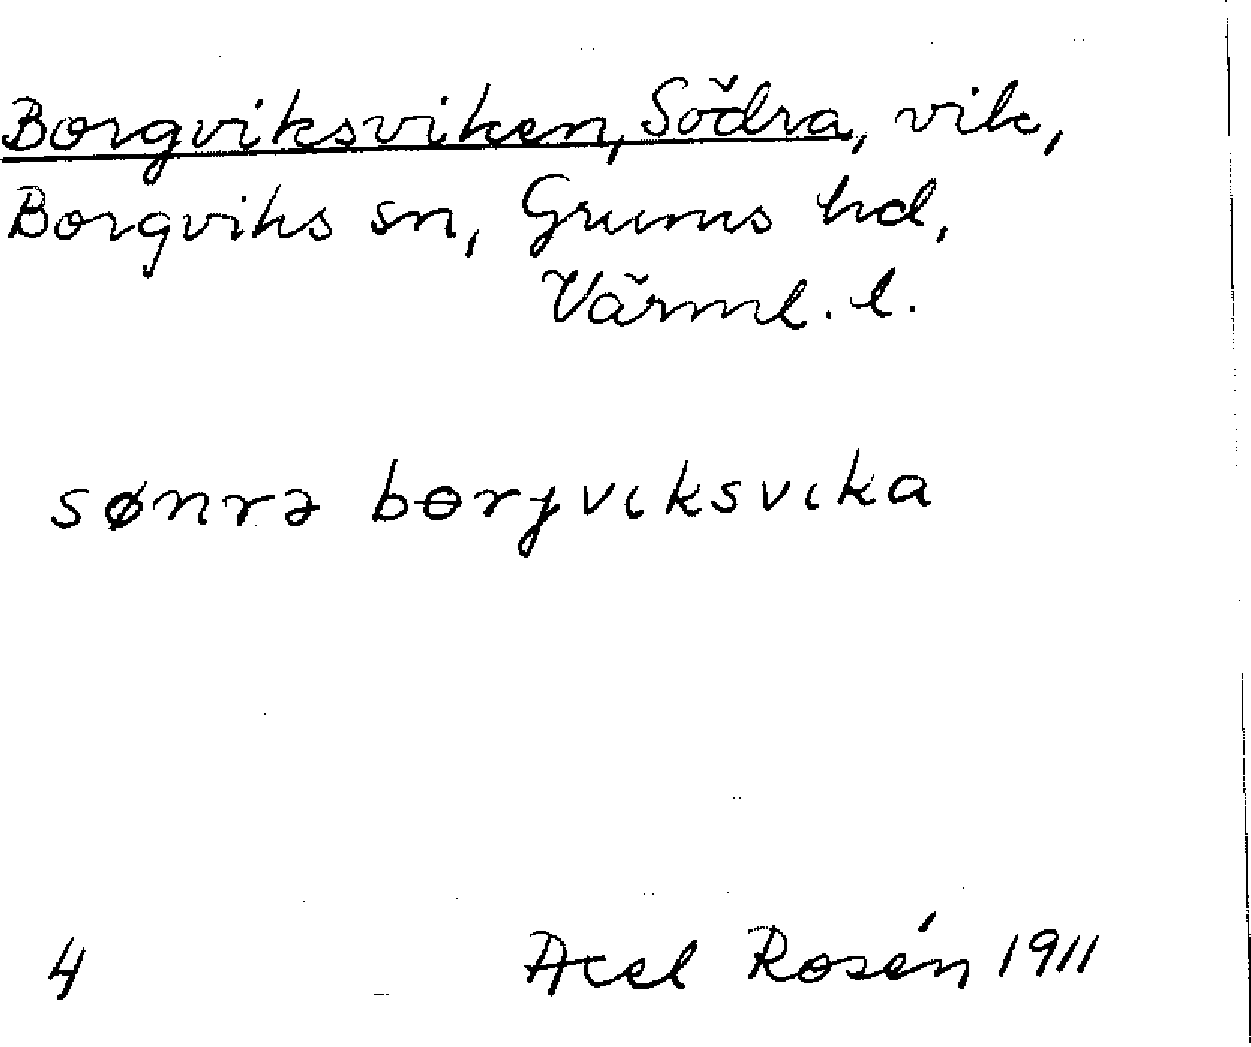 Borgviksviken, Södra, vik,
Borgviks sn, Grums hd,
Värml. l.
sønrə bɵrjvιksvιka
4 Axel Rosén 1911